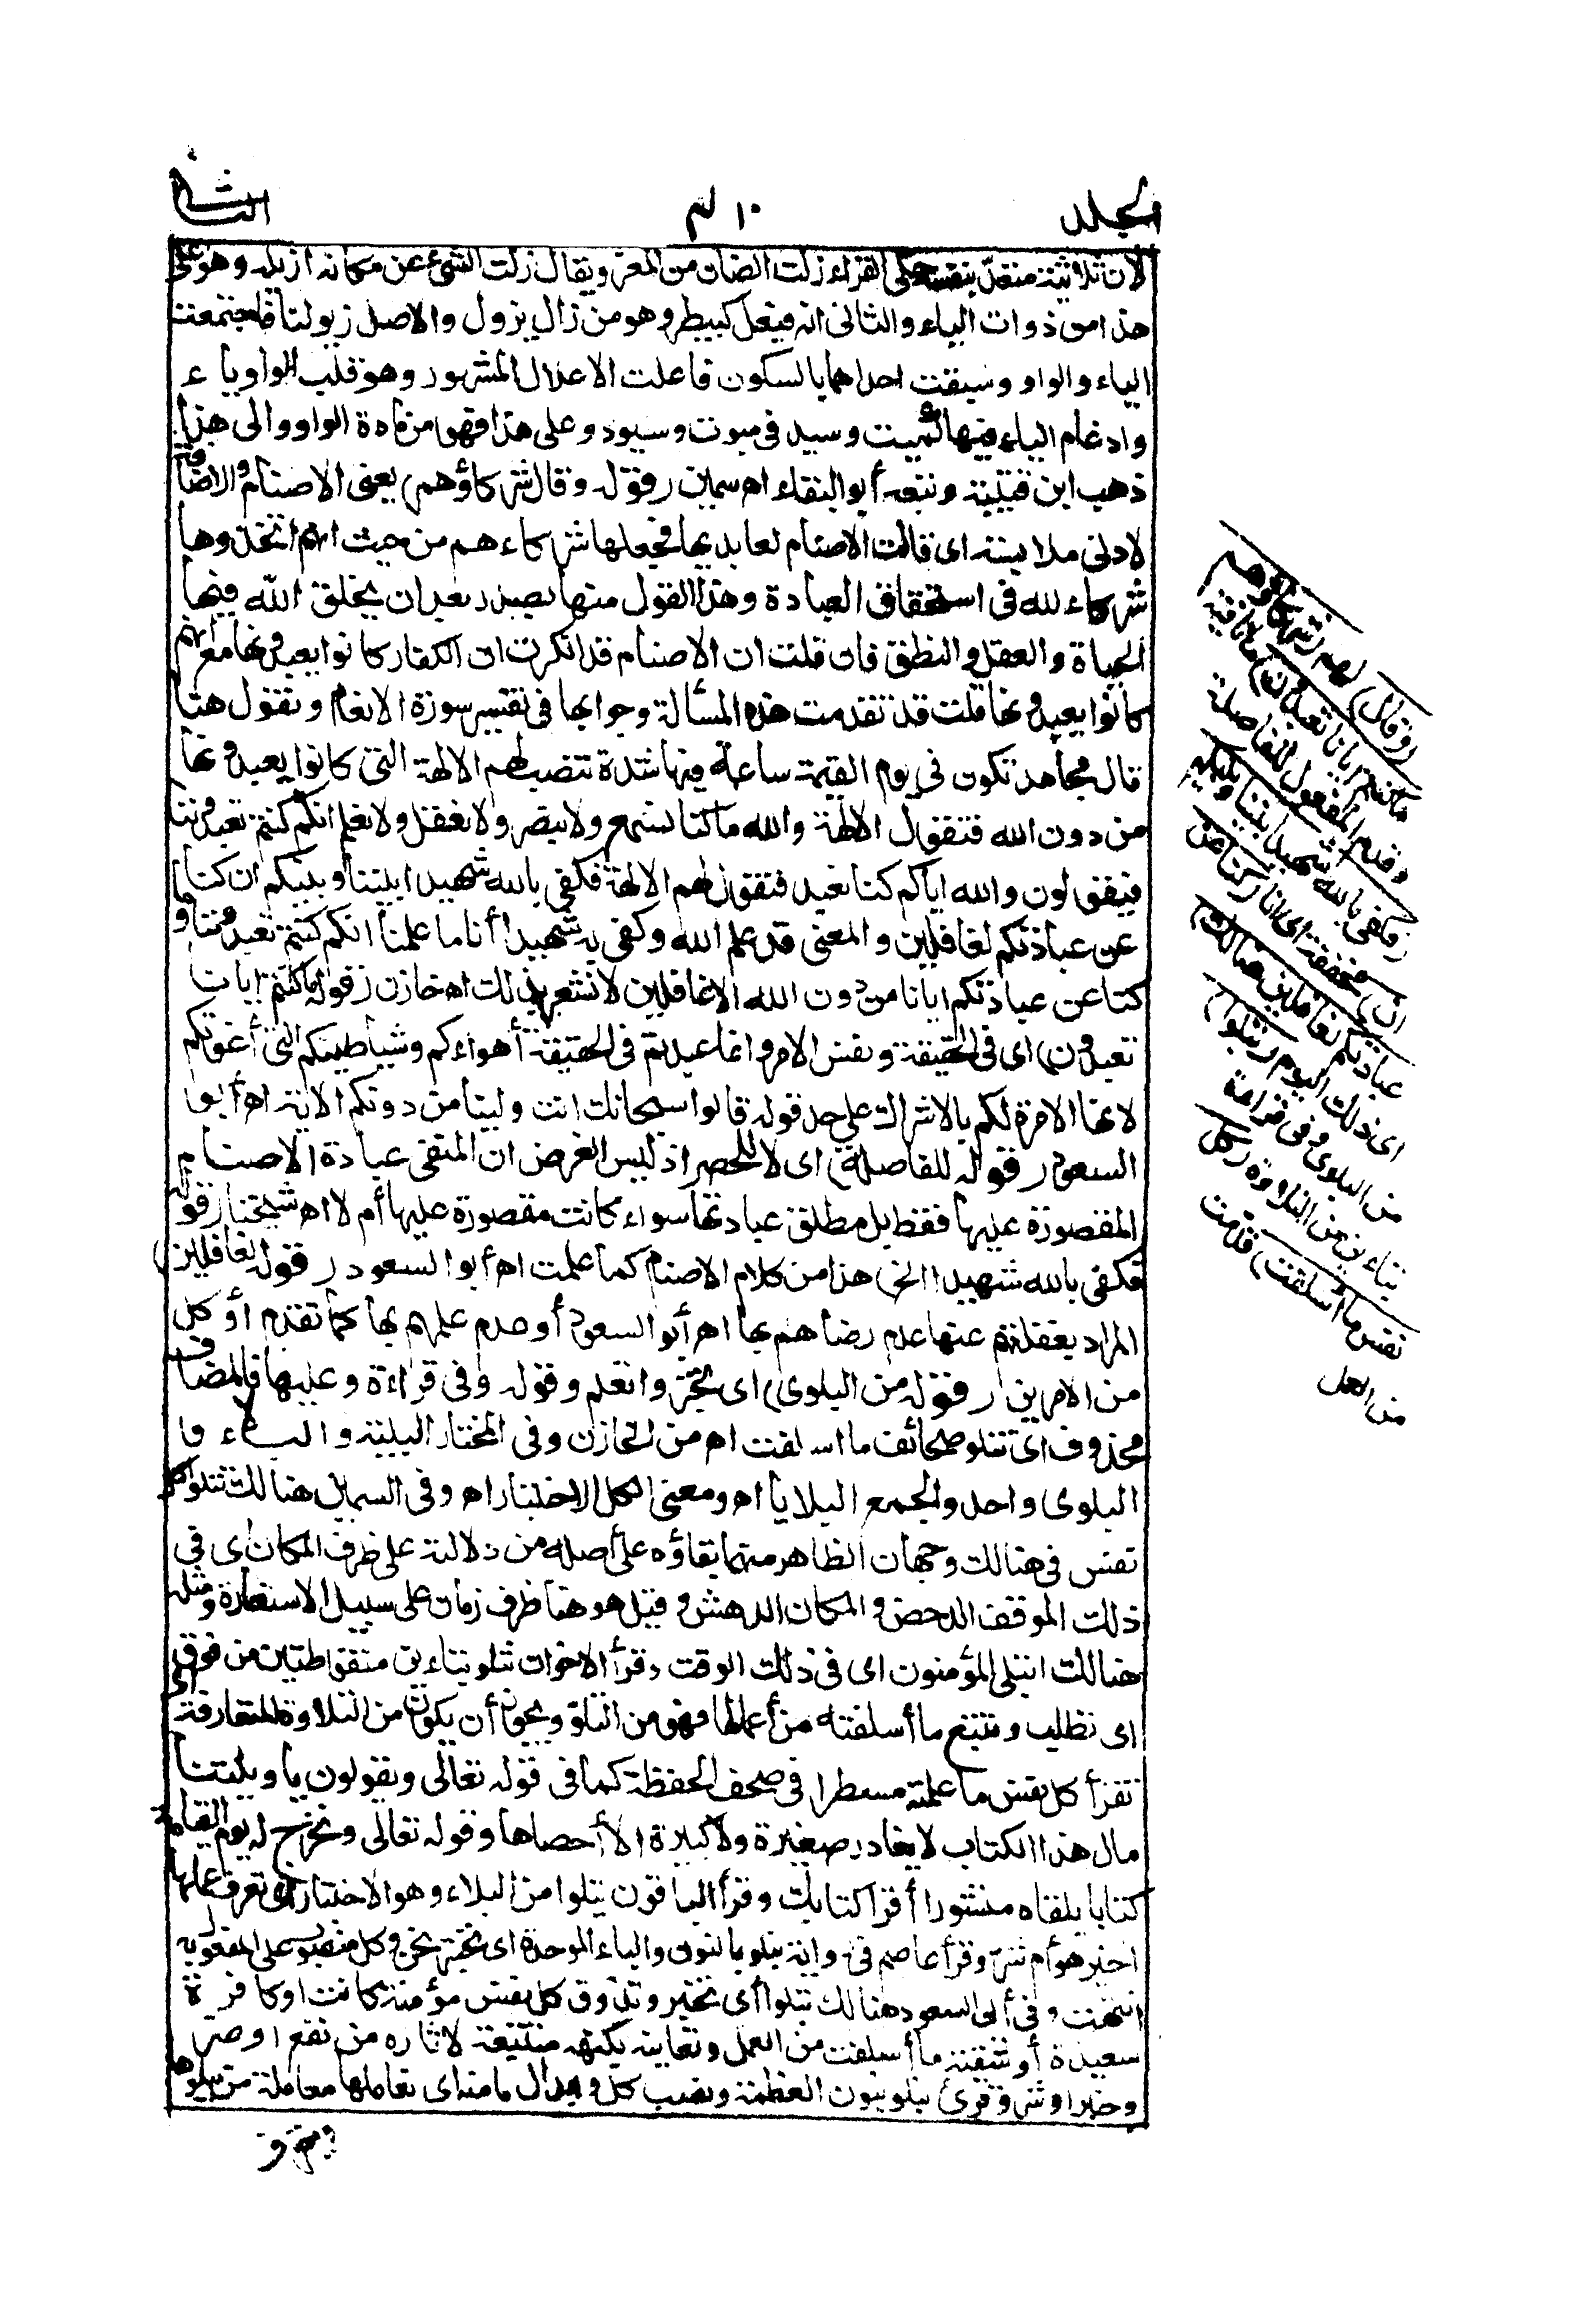 المجلد
الثاني
لان ثلاثيه متعد بنفسه حكى الفراء زلت الضان من المعز ويقال زلت الشئ عن مكانه ازيله وهو على
هذا من ذوات الياء والثانى انه فيعل كبيطر وهو من زال يزول والاصل زيولنا فاجتمعت
الياء والواو وسبقت احداهما بالسكون فاعلت الاعلال المشهور وهو قلب الواو ياء
وادغام الياء فيها كميت وسيد فى ميوت وسيود وعلى هذا فهو من مادة الواو والى هذا
ذهب ابن قتيبة وتبعه أبو البقاء اه سمين (قوله وقال شركاؤهم) يعنى الاصنام والاضافة
لادنى ملابسة اى قالت الاصنام لعابديها فجعلها شركاءهم من حيث انهم اتخذوها
شركاء لله فى استحقاق العبادة وهذا القول منها يصدر بعد ان يخلق الله فيها
الحياة والعقل والنطق فان قلت ان الاصنام قد انكرت ان الكفار كانوا يعبدونها مع انهم
كانوا يعبدونها قلت قد تقدمت هذه المسألة وجوابها فى تفسير سورة الانعام ونقول هنا
قال مجاهد تكون فى يوم القيمة ساعة فيها شدة تنصب لهم الالهة التى كانوا يعبدونها
من دون الله فتقول الالهة والله ما كنا نسمع ولا نبصر ولا نعقل ولا نعلم انكم كنتم تعبدوننا
فيقولون والله اياكم كنا نعبد فتقول لهم الالهة فكفى بالله شهيدا بيننا وبينكم ان كنا
عن عبادتكم لغافلين والمعنى قد علم الله وكفى به شهيدا أنا ما علمنا انكم كنتم تعبدوننا وما
كنا عن عبادتكم ايانا من دون الله الا غافلين لا نشعر بذلك اه خازن (قوله ما كنتم ايانا
تعبدون) اى فى الحقيقة ونفس الامر وانما عبدتم فى الحقيقة أهواءكم وشياطينكم التى أغوتكم
لانها الامرة لكم بالاشراك على حد قوله قالوا سبحانك انت ولينا من دونهم الاية اه أبو
السعود (قوله للفاصلة) اى لا للحصر اذ ليس الغرض ان المنفى عبادة الاصنام
المقصورة عليها فقط بل مطلق عبادتها سواء كانت مقصورة عليها أم لا اه شيخنا (قوله
فكفى بالله شهيدا الخ) هذا من كلام الاصنام كما علمت اه أبو السعود (قوله لغافلين)
المراد بغفلتهم عنها عدم رضاهم بها اه أبو السعود أو عدم علمهم بها كما تقدم أو كل
من الامرين (قوله من البلوى) اى تختبر وتعلم وقوله وفى قراءة وعليها فالمضاف
محذوف اى تتلو صحائف ما اسلفت اه من الخازن وفى المختار البلية والبلاء وا
البلوى واحد والجمع البلايا اه ومعنى الكل الاختبار اه وفى السمين هنالك تتلو كل
نفس فى هنالك وجهان الظاهر منهما بقاؤه على أصله من دلالته على ظرف المكان اى فى
ذلك الموقف الدحض والمكان الدهش وقيل هو هنا ظرف زمان على سبيل الاستعارة ومثله
هنالك ابتلى المؤمنون اى فى ذلك الوقت وقرأ الاخوان تتلو بتاءين منقوطتين من فوق
اى تطلب وتتبع ما أسلفته من أعمالها فهو من التلو ويجوز أن يكون من التلاوة المتعارفة اى
تقرأ كل نفس ما عملته مسطرا فى صحف الحفظة كما فى قوله تعالى ويقولون يا ويلتنا
مال هذا الكتاب لا يغادر صغيرة ولا كبيرة الا أحصاها وقوله تعالى ونخرج له يوم القيامة
كتابا يلقاه منشورا أقرأ كتابك وقرأ الباقون تبلوا من البلاء وهو الاختبار اى تعرف عملها
اخير هو أم شر وقرأ عاصم فى رواية نبلو بالنون والباء الموحدة اى نختبر نحن وكل منصوب على المفعولية
انتهت وفى أبى السعود هنالك تبلوا أى تختبر وتذوق كل نفس مؤمنة كانت او كافرة
سعيدة أو شقية ما أسلفت من العمل وتعاينه بكنهه مستتبعة لاثاره من نفع او ضر
وخير او شر وقرئ نبلو بنون العظمة ونصب كل وابدال ما منه اى نعاملها معاملة من يبلوها
(وقال) لهم (شركاؤهم
ما كنتم ايانا تعبدون) ما نافية
وقدم المفعول للفاصلة
(فكفى بالله شهيدا بيننا وبينكم
ان) مخففة اى انا (كنا عن
عبادتكم لغافلين هنالك)
اى ذلك اليوم (تبلوا)
من البلوى وفى قراءة
بتاءين من التلاوة (كل
نفس ما أسلفت) قدمت
من العمل